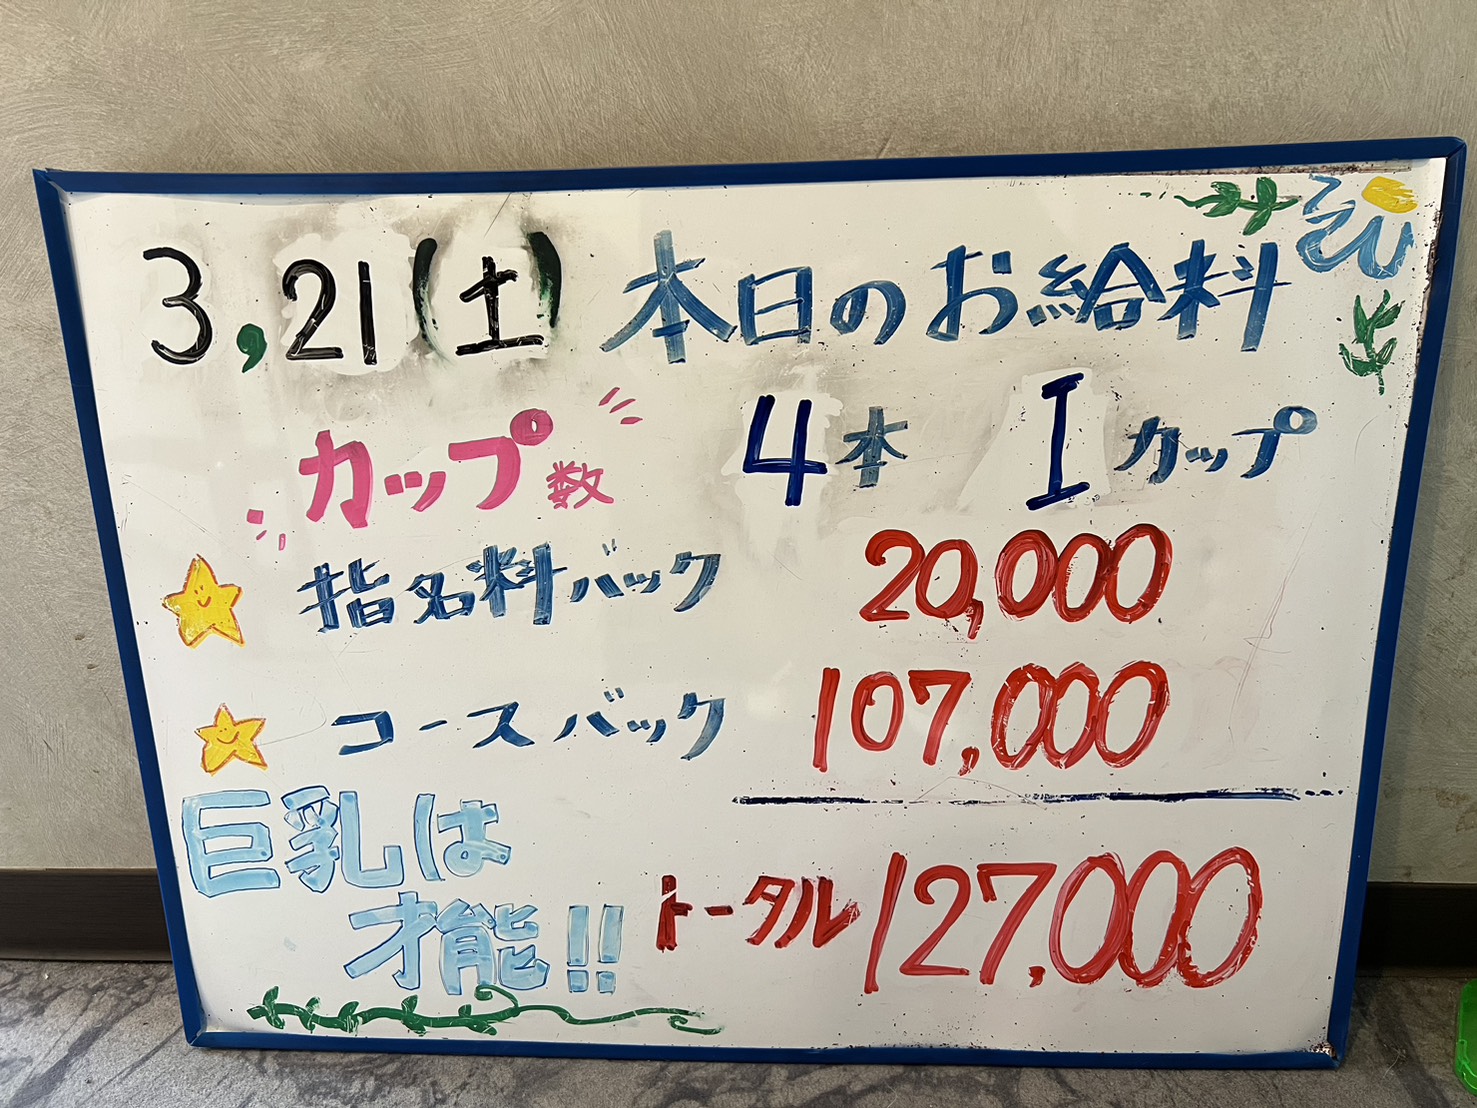 3,21(土) 本日のお給料
カップ数 4本 Iカップ
指名料バック 20,000
コースバック 107,000
巨乳は
才能!!
トータル 127,000